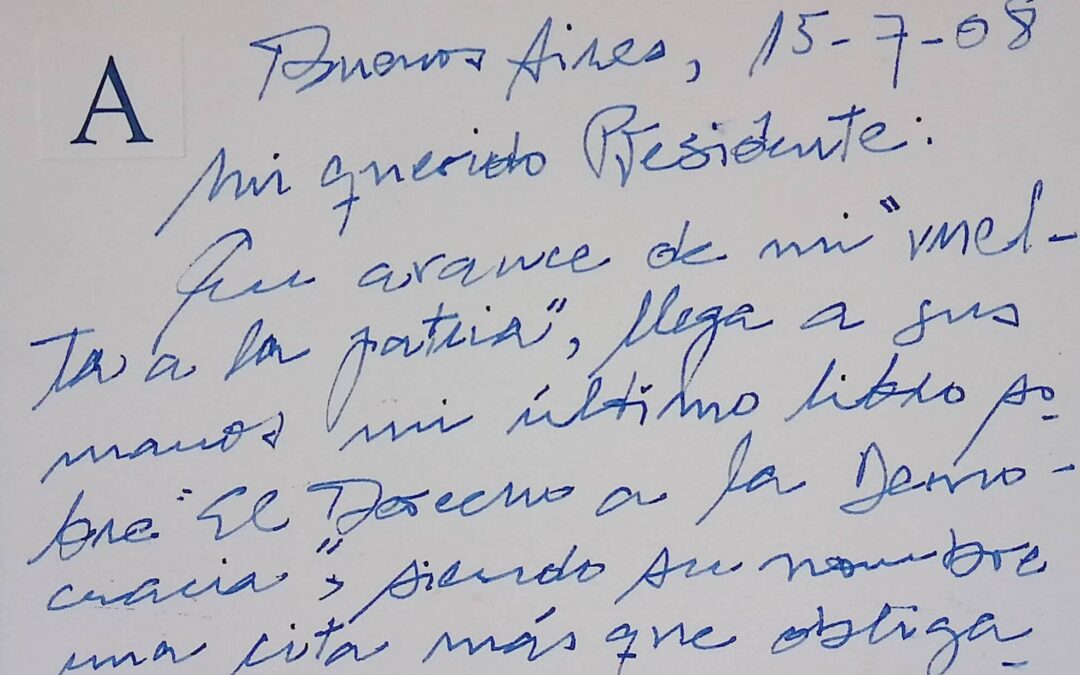 A
Buenos Aires, 15-7-08
Mi querido Presidente:
Un avance de mi "vuel-
ta a la patria", llega a sus
manos mi último libro so-
bre "El Derecho a la Demo-
cracia", siendo su nombre
una cita más que obliga-